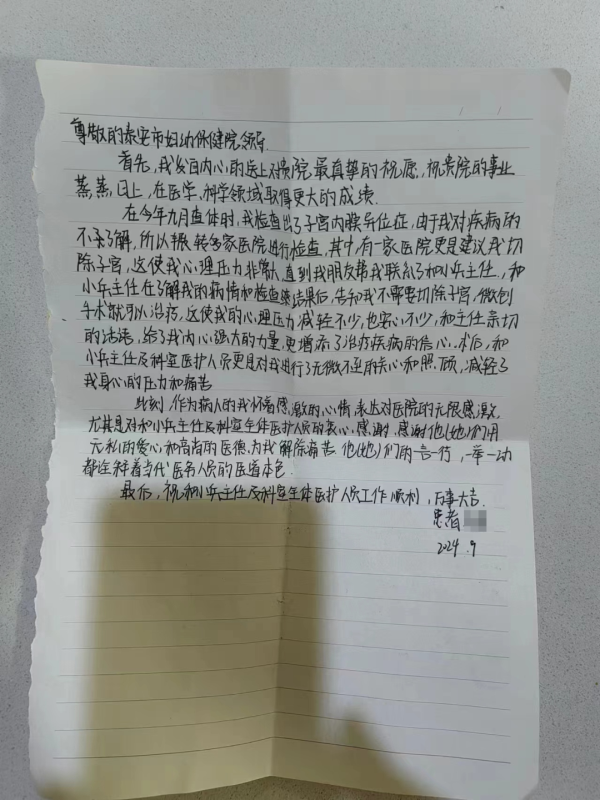 尊敬的泰安市妇幼保健院领导
首先,我发自内心的送上对贵院最真挚的祝愿,祝贵院的事业
蒸蒸日上,在医学,科学领域取得更大的成绩.
在今年九月查体时,我检查出了子宫内膜异位症,由于我对疾病的
不了解,所以辗转多家医院进行检查,其中有一家医院更是建议我切
除子宫,这使我心理压力非常大,直到我朋友帮我联系了和小兵主任,和
小兵主任在了解我的病情和检查结果后,告知我不需要切除子宫,微创
手术就可以治疗,这使我的心理压力减轻不少,也安心不少,和主任亲切
的话语,给了我内心强大的力量,更增添了治疗疾病的信心.术后,和
小兵主任及科室医护人员更是对我进行了无微不至的关心和照顾,减轻了
我身心的压力和痛苦
此刻作为病人的我怀着感激的心情表达对医院的无限感激,
尤其是对和小兵主任及科室全体医护人员的衷心感谢,感谢他(她)们用
无私的爱心和高尚的医德,为我解除痛苦他(她)们的一言一行,一举一动
都诠释着当代医务人员的医道本色.
最后,祝和小兵主任及科室全体医护人员工作顺利,万事大吉.
患者
2024.9